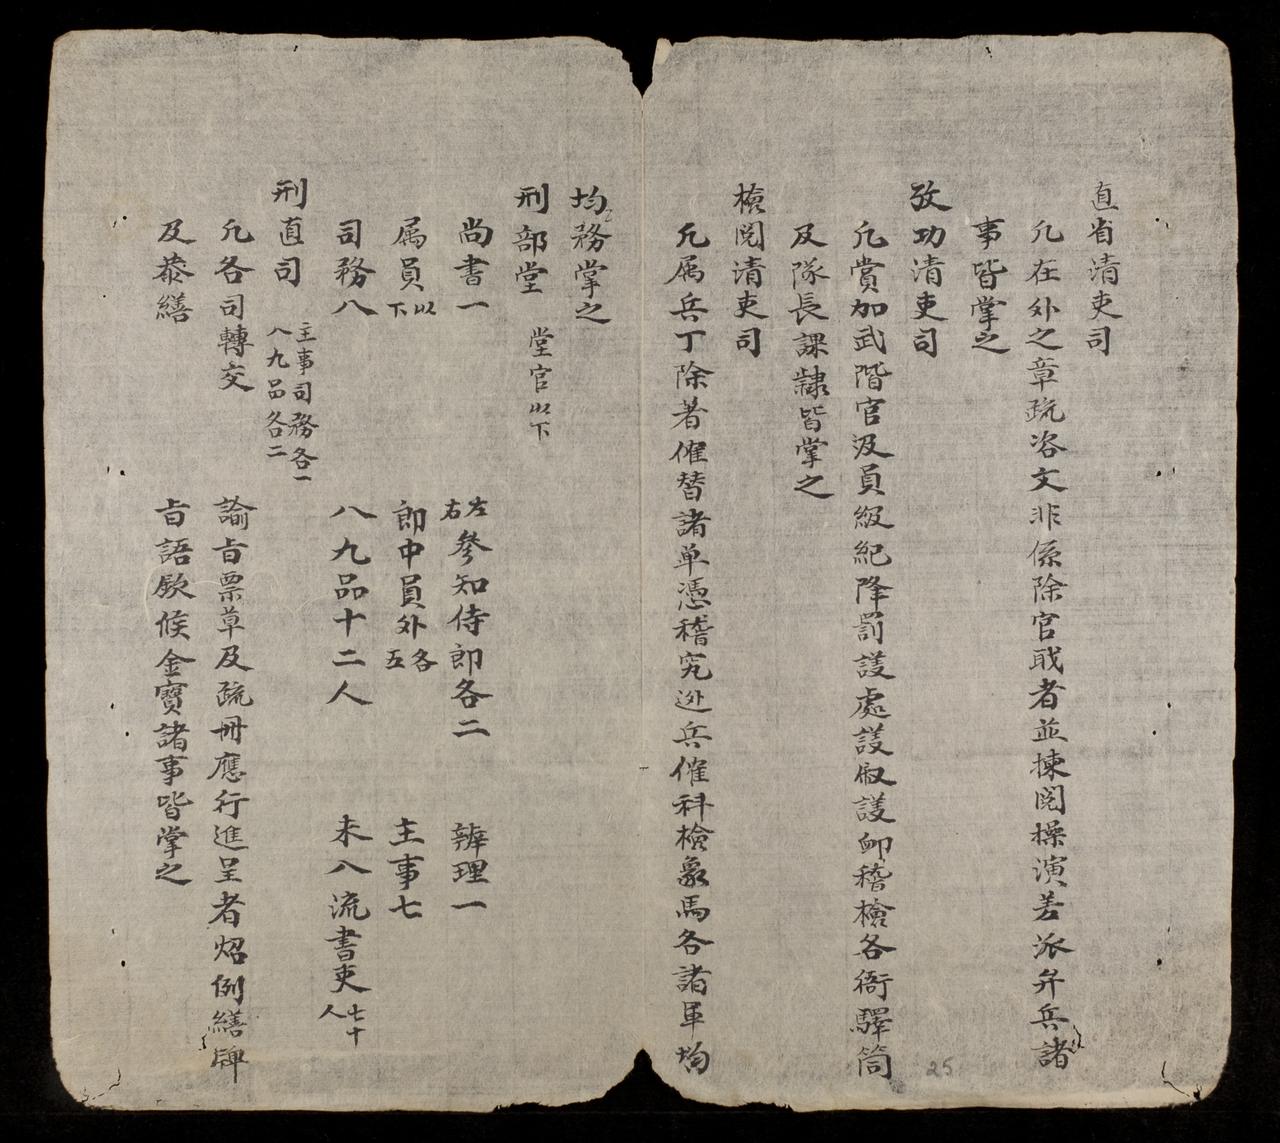 直省清吏司
凢在外之章疏咨文非係除官戢者並揀閲操演差派弁兵諸
事皆掌之
攷功清吏司
凢賞加武階官汲員級紀降罰議處議叙議卹稽檢各衙驛筒
及隊長課隸皆掌之
檢閲清吏司
凢属兵丁除著催替諸单憑稽究迯兵催科檢象馬各諸軍均
均務掌之
刑部堂 堂官以下
尚書一 左右參知侍郎各二 辦理一
属員以下 郎中員外各五 主事七
司務八 八九品十二人 未入流書吏七十人
刑直司 主事司務各一八九品各二
凢各司轉交 諭旨票草及疏冊應行進呈者炤例繕牌
及恭繕 旨語欽候金寶諸事皆掌之
25